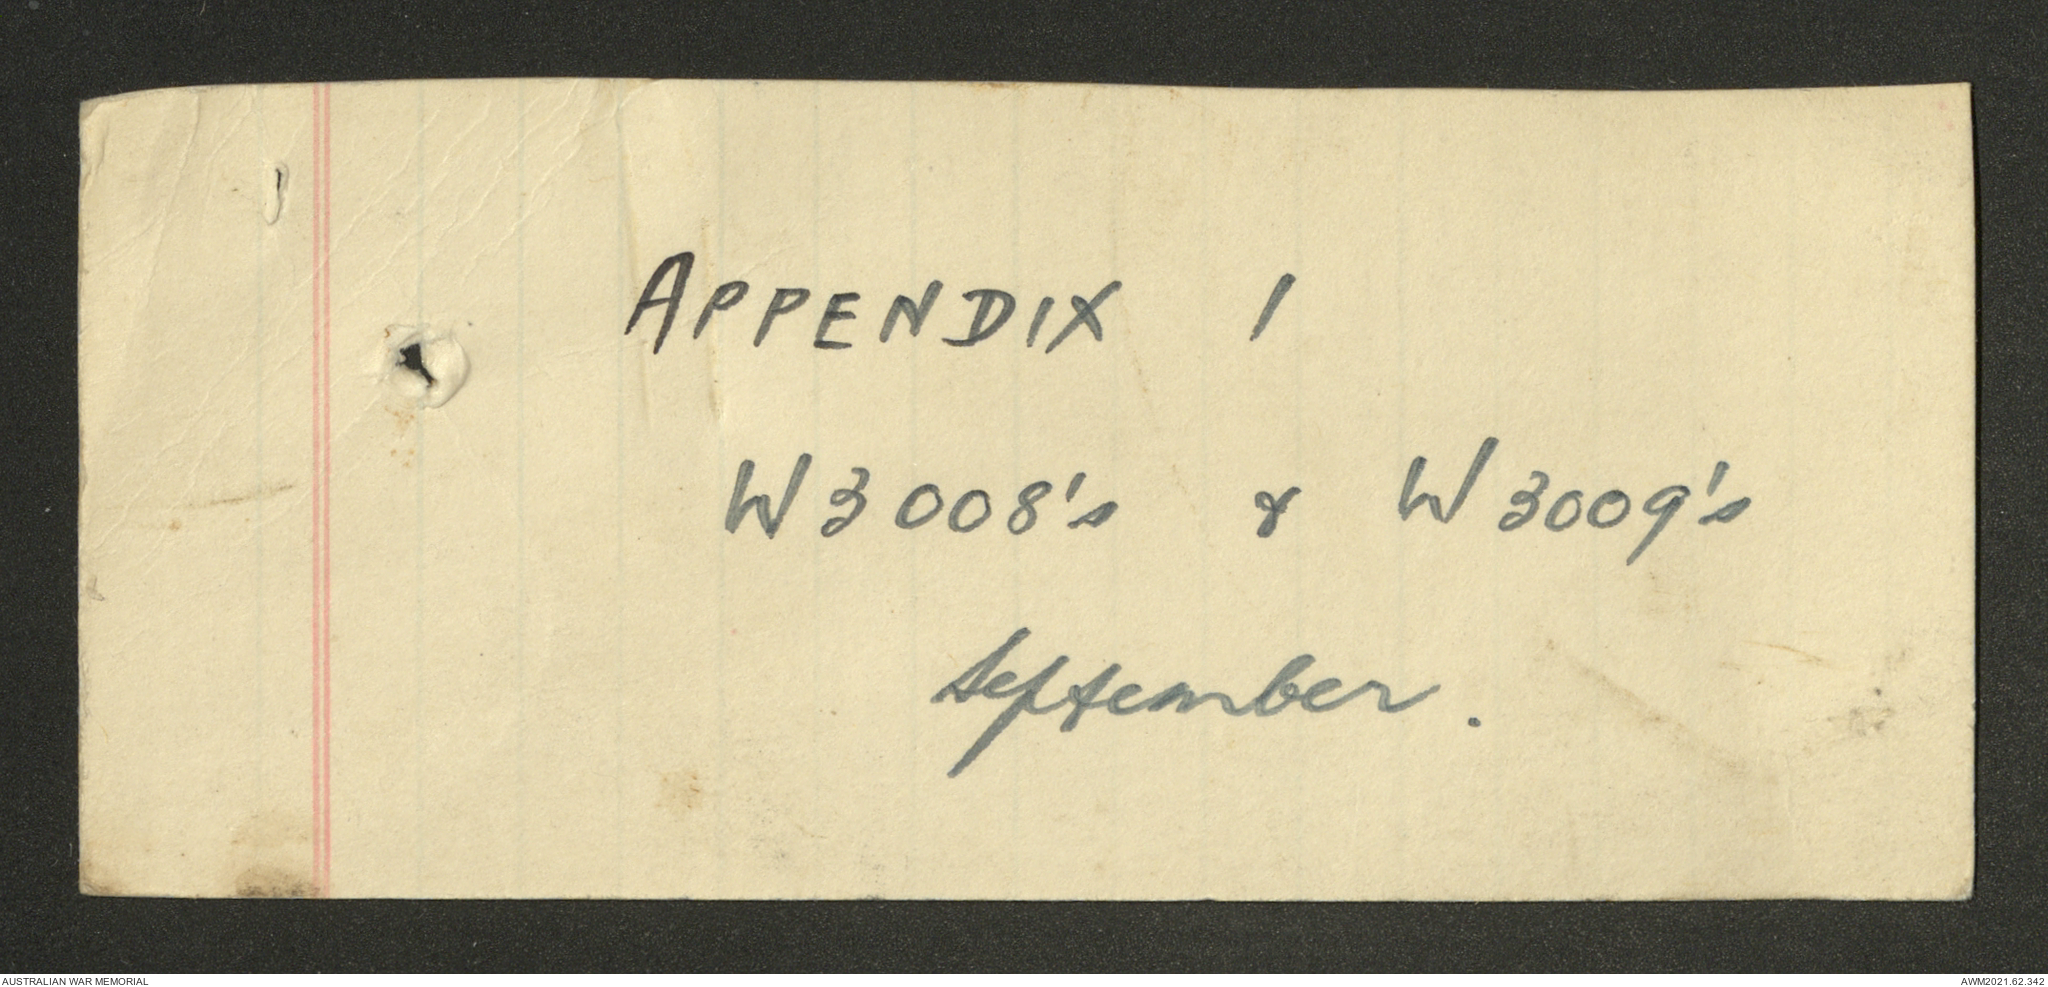 APPENDIX 1
W3008's & W3009's
September.
AUSTRALIAN WAR MEMORIAL
AWM2021.62.342